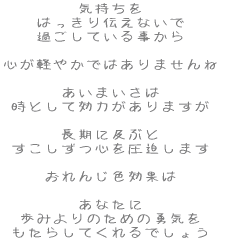 気持ちを
はっきり伝えないで
過ごしている事から
心が軽やかではありませんね
あいまいさは
時として効力がありますが
長期に及ぶと
すこしずつ心を圧迫します
おれんじ色効果は
あなたに
歩みよりのための勇気を
もたらしてくれるでしょう